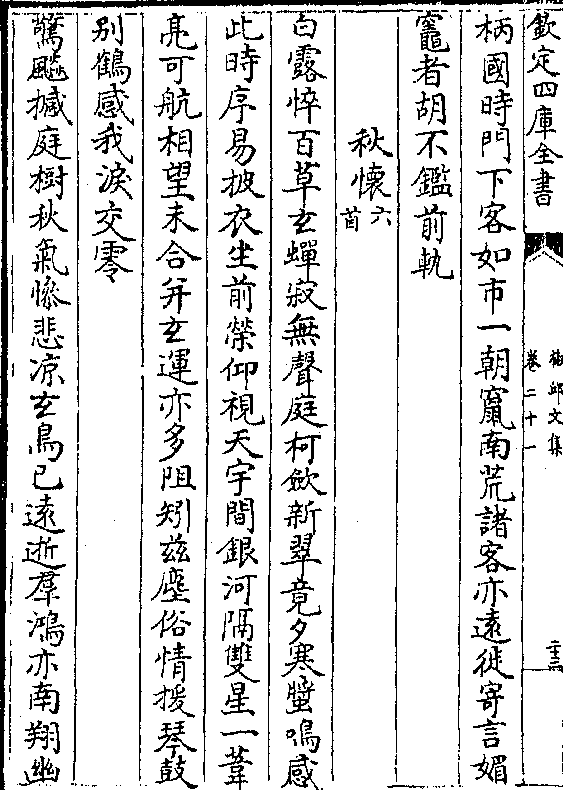 欽定四庫全書
卷二十一
二十三
柄國時門下客如市一朝竄南荒諸客亦遠徙寄言媚
竈者胡不鑑前軌
秋懷六首
白露悴百草玄蟬寂無聲庭柯歛新翠竟夕寒螿鳴感
此時序易披衣坐前榮仰視天宇間銀河隔雙星一葦
亮可航相望未合并玄運亦多阻矧兹塵俗情援琴鼓
别鶴感我淚交零
驚飈撼庭樹秋氣慘悲凉玄鳥已遠逝羣鴻亦南翔幽